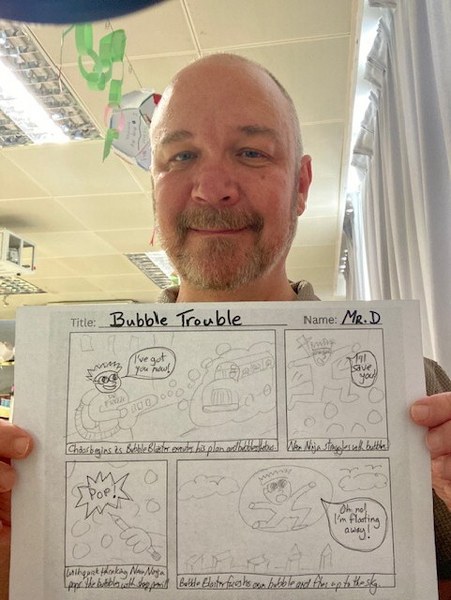 Title: Bubble Trouble Name: Mr. D
I've got
you now!
I'll
save
you!
Chaos begins as Bubble Blaster executes his plan and
New Ninja struggles with bubbles.
POP!
Oh no!
I'm floating
away!
With quick thinking New Ninja
pops the bubbles with sharp pencil
Bubble Blaster faces his own bubble and flies up to the sky.